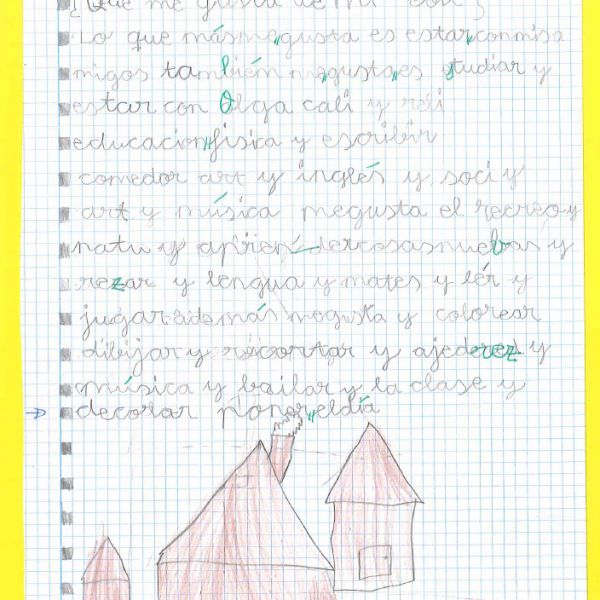 Lo que más me gusta es estar con mis a
migos también me gusta es studiar y
estar con Olga cali y reli
educacion fisica y escribir
comedor art y inglés y soci y
art y música me gusta el recreo y
natu y aprien der cosas nuebas y
rezar y lengua y mates y lér y
jugar además me gusta y colorear
dibijar y recortar y ajedrez y
música y bailar y la clase y
decorar poner el día